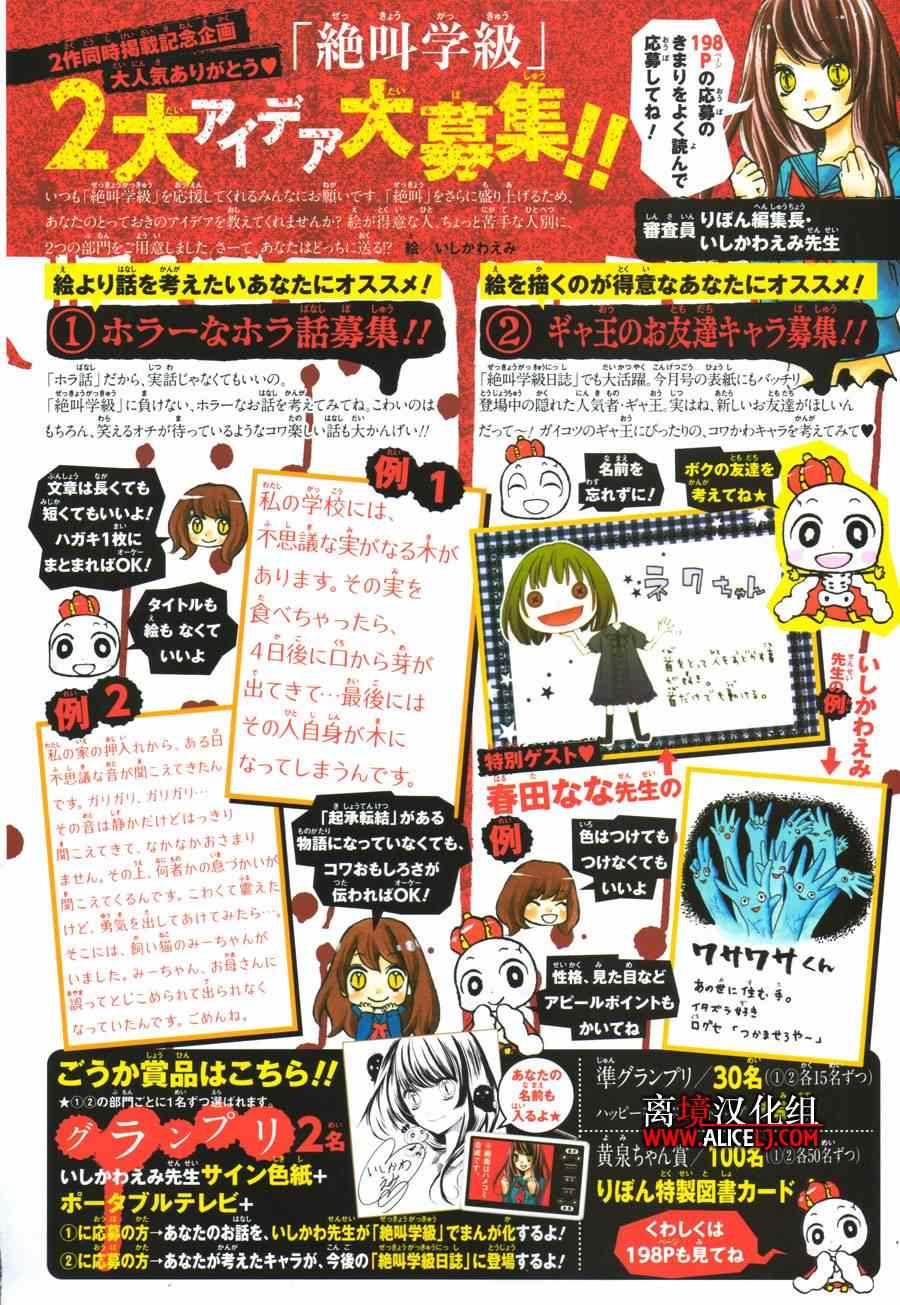 2作同時掲載記念企画
大人気ありがとう♥
「絶叫学級」
2大アイデア大募集!!
198Pの応募の
きまりをよく読んで
応募してね!
いつも「絶叫学級」を応援してくれるみんなにお願いです。「絶叫」をさらに盛り上げるため、
あなたのとっておきのアイデアを教えてくれませんか? 絵が得意な人、ちょっと苦手な人別に、
2つの部門をご用意しました。さーて、あなたはどっちに送る!? 絵/いしかわえみ
審査員 りぼん編集長・
いしかわえみ先生
絵より話を考えたいあなたにオススメ!
①ホラーなホラ話募集!!
「ホラ話」だから、実話じゃなくてもいいの。
「絶叫学級」に負けない、ホラーなお話を考えてみてね。こわいのは
もちろん、笑えるオチが待っているようなコワ楽しい話も大かんげい!!
文章は長くても
短くてもいいよ!
ハガキ1枚に
まとまればOK!
タイトルも
絵も なくて
いいよ
例1
私の学校には、
不思議な実がなる木が
あります。その実を
食べちゃったら、
4日後に口から芽が
出てきて…最後には
その人自身が木に
なってしまうんです。
例2
私の家の押入れから、ある日
不思議な音が聞こえてきたん
です。ガリガリ、ガリガリ…
その音は静かだけどはっきり
聞こえてきて、なかなかおさまり
ません。その上、何者かの息づかいが
聞こえてくるんです。こわくて震えた
けど、勇気を出してあけてみたら…。
そこには、飼い猫のみーちゃんが
いました。みーちゃん、お母さんに
誤ってとじこめられて出られなく
なっていたんです。ごめんね。
「起承転結」がある
物語になっていなくても、
コワおもしろさが
伝わればOK!
絵を描くのが得意なあなたにオススメ!
②ギャ王のお友達キャラ募集!!
「絶叫学級日誌」でも大活躍。今月号の表紙にもバッチリ
登場中の隠れた人気者・ギャ王。実はね、新しいお友達がほしいん
だって〜! ガイコツのギャ王にぴったりの、コワかわキャラを考えてみて♥
名前を
忘れずに!
ボクの友達を
考えてね★
ネクちゃん
首をとって人をおどかす事
が好き。
首だけでも動ける。
特別ゲスト♥
春田なな先生の
例
いしかわえみ
先生の例
色はつけても
つけなくても
いいよ
性格、見た目など
アピールポイントも
かいてね
ワサワサくん
あの世に住む手。
イタズラ好き
口グセ「つかませろや〜」
ごうか賞品はこちら!!
★①②の部門ごとに1名ずつ選ばれます。
グランプリ2名
いしかわえみ先生サイン色紙+
ポータブルテレビ+
①に応募の方→あなたのお話を、いしかわ先生が「絶叫学級」でまんが化するよ!
②に応募の方→あなたが考えたキャラが、今後の「絶叫学級日誌」に登場するよ!
あなたの
名前も
入るよ★
いしかわえみ
画面はハメコミ
合成です。
準グランプリ/30名(①②各15名ずつ)
ハッピー
离境汉化组
WWW.ALICELJ.COM
黄泉ちゃん賞/100名(①②各50名ずつ)
りぼん特製図書カード
くわしくは
198Pも見てね